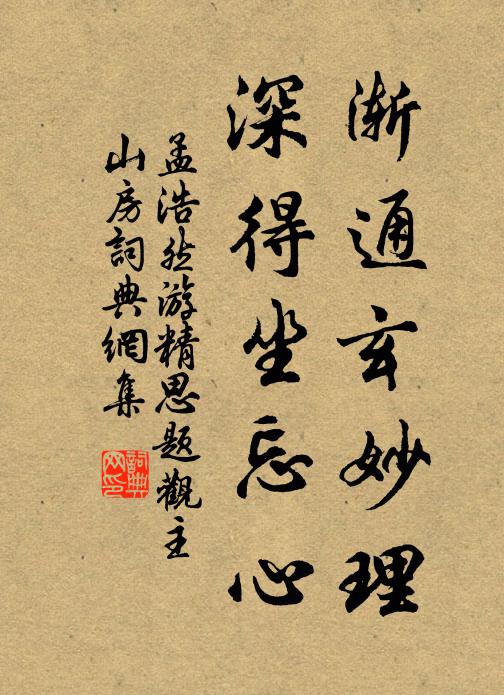 渐通玄妙理
深得坐忘心
孟浩然游精思题觀主
山房詞典網集
詞典网印